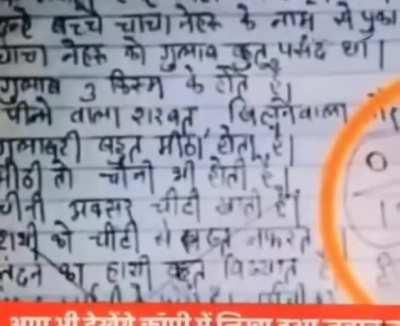 बच्चे चाचा नेहरू के नाम से पुका
चाचा नेहरू को गुलाब बहुत पसंद था।
गुलाब 3 किस्म के होते है।
पीने वाला शरबत खिलनेवाला और
गुलाबरी बहुत मीठा होता है।
मीठी तो चीनी भी होती है।
चीनी अक्सर चींटी खाती है।
हाथी को चींटी से बहुत नफरत
लंदन का हाथी बहुत विख्यात है
आप भी देखेंगे कॉपी में लिखा हुआ जवाब